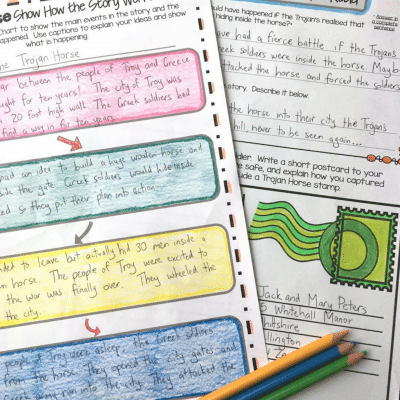 se Show How the Story Wor
Chart to show the main events in the story and the
appened. Use captions to explain your ideas and show
what is happening.
he Trojan Horse
ar between the people of Troy and Greece
ught for ten years! The city of Troy was
20 foot high wall. The Greek soldiers had
find a way in for ten years.
had an idea to build a huge wooden horse and
ide the gate. Greek soldiers would hide inside
ed so they put their plan into action.
ded to leave but actually hid 30 men inside a
n horse. The people of Troy were excited to
the war was finally over. They wheeled the
the city.
people of Troy were asleep, the Greek soldiers
from the horse. They opened the city gates and
army ran into the city. They attacked the
uld have happened if the Trojans realised that
hiding inside the horse?*
* Answer in
a complete
sentence.
ave had a fierce battle if the Trojans
eek soldiers were inside the horse. Mayb
ttacked the horse and forced the soldiers
story. Describe it below.
the horse into their city, the Trojans
hill, never to be seen again...
dier. Write a short postcard to your
e safe, and explain how you captured
ude a Trojan Horse stamp.
Jack and Mary Peters
5 Whitehall Manor
hiltshire
llington